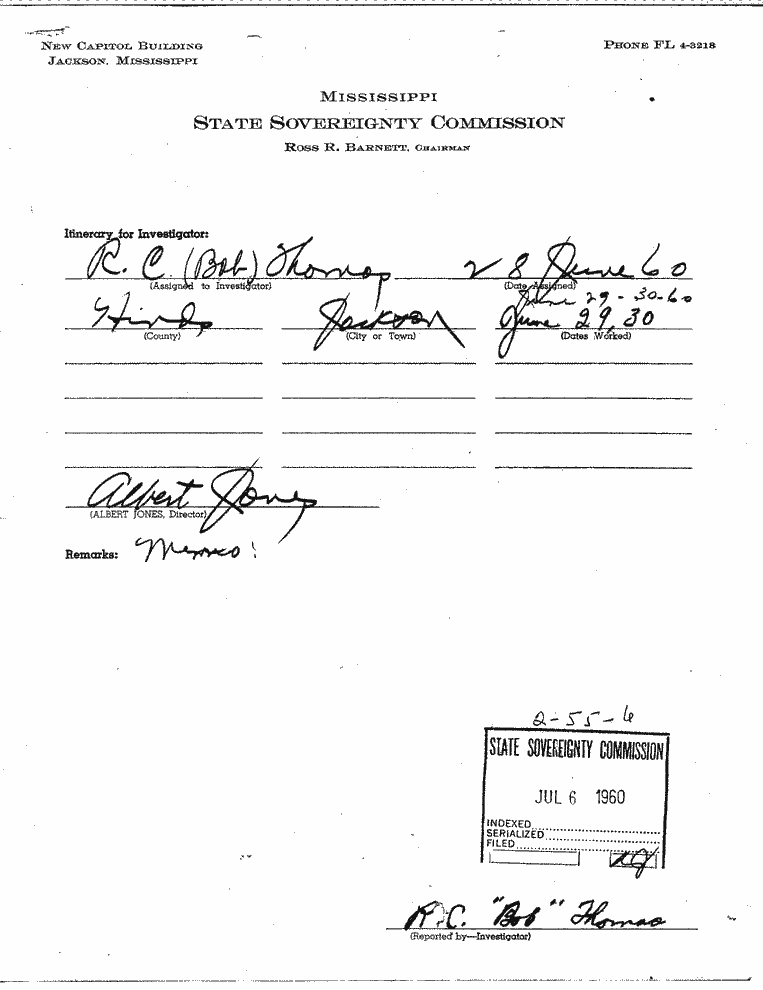 NEW CAPITOL BUILDING
JACKSON, MISSISSIPPI
PHONE FL 4-3218
MISSISSIPPI
STATE SOVEREIGNTY COMMISSION
ROSS R. BARNETT, CHAIRMAN
Itinerary for Investigator:
R. C. (Bob) Thomas 28 June 60
(Assigned to Investigator) (Date Assigned)
June 29-30-60
Hinds Jackson June 29, 30
(County) (City or Town) (Dates Worked)
Albert Jones
(ALBERT JONES, Director)
Remarks: Memco!
2-55-6
STATE SOVEREIGNTY COMMISSION
JUL 6 1960
INDEXED
SERIALIZED
FILED
R.C. "Bob" Thomas
(Reported by—Investigator)